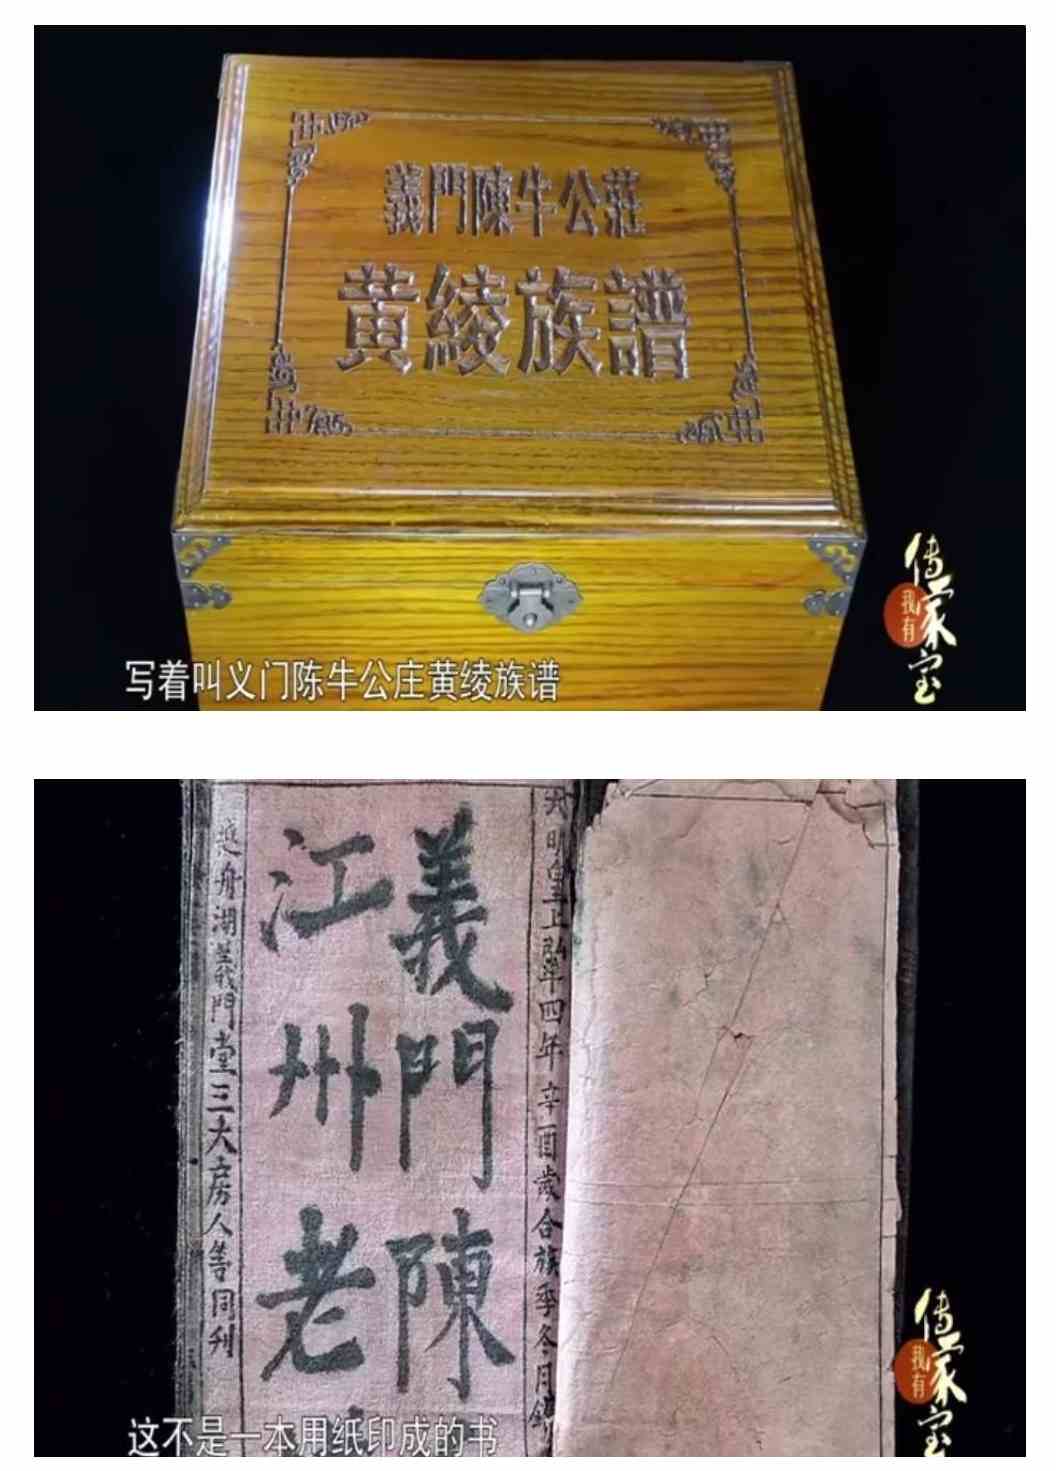 義門陳牛公莊
黄綾族譜
傳家宝
我有
写着叫义门陈牛公庄黄绫族谱
大明皇上弘 四年辛酉歲合族季冬月
義門陳
江州老
舟湖義門堂三大房人等同刊
傳家宝
我有
这不是一本用纸印成的书